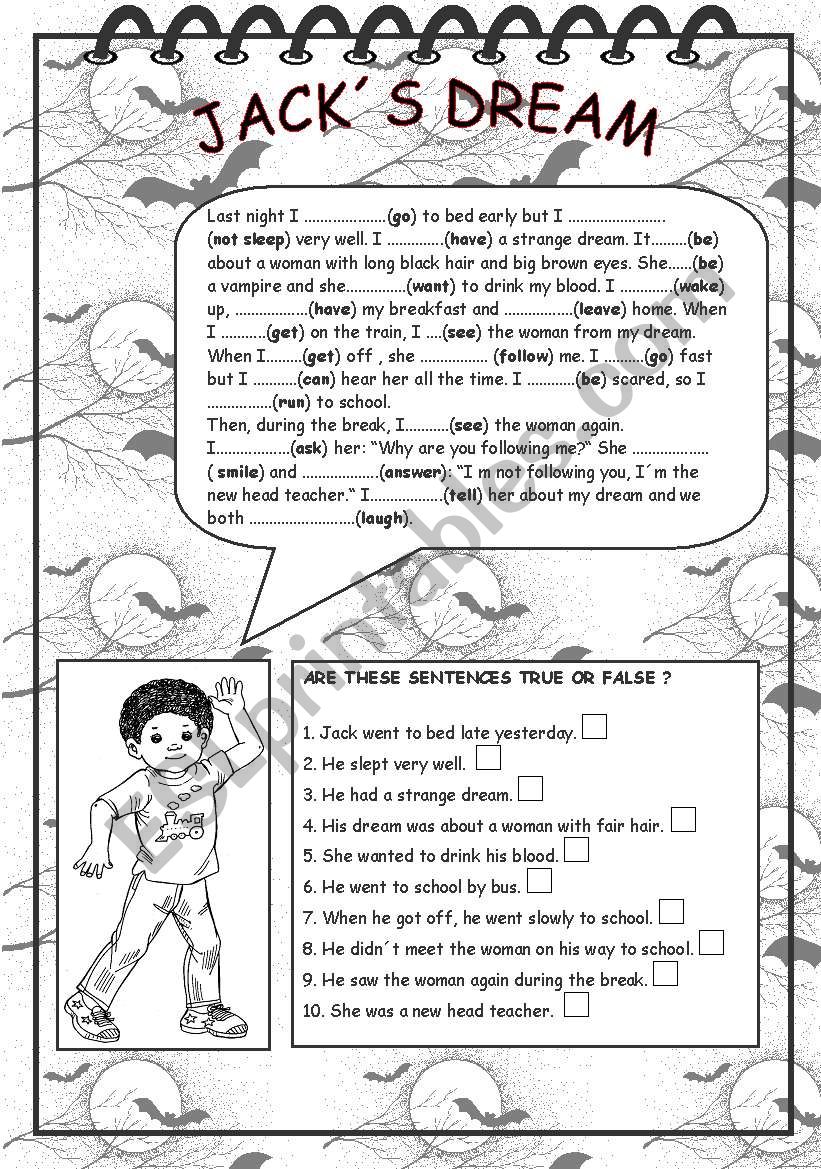 JACK´S DREAM
Last night I ...................(go) to bed early but I ......................
(not sleep) very well. I .............(have) a strange dream. It........(be)
about a woman with long black hair and big brown eyes. She.....(be)
a vampire and she.............(want) to drink my blood. I ............(wake)
up, ................(have) my breakfast and ................(leave) home. When
I ..........(get) on the train, I ....(see) the woman from my dream.
When I........(get) off , she ............... (follow) me. I .........(go) fast
but I ..........(can) hear her all the time. I ...........(be) scared, so I
...............(run) to school.
Then, during the break, I..........(see) the woman again.
I.................(ask) her: “Why are you following me?“ She .................
( smile) and .................(answer): “I m not following you, I´m the
new head teacher.“ I................(tell) her about my dream and we
both ........................(laugh).
ARE THESE SENTENCES TRUE OR FALSE ?
1. Jack went to bed late yesterday.
2. He slept very well.
3. He had a strange dream.
4. His dream was about a woman with fair hair.
5. She wanted to drink his blood.
6. He went to school by bus.
7. When he got off, he went slowly to school.
8. He didn´t meet the woman on his way to school.
9. He saw the woman again during the break.
10. She was a new head teacher.
ESLprintables.com